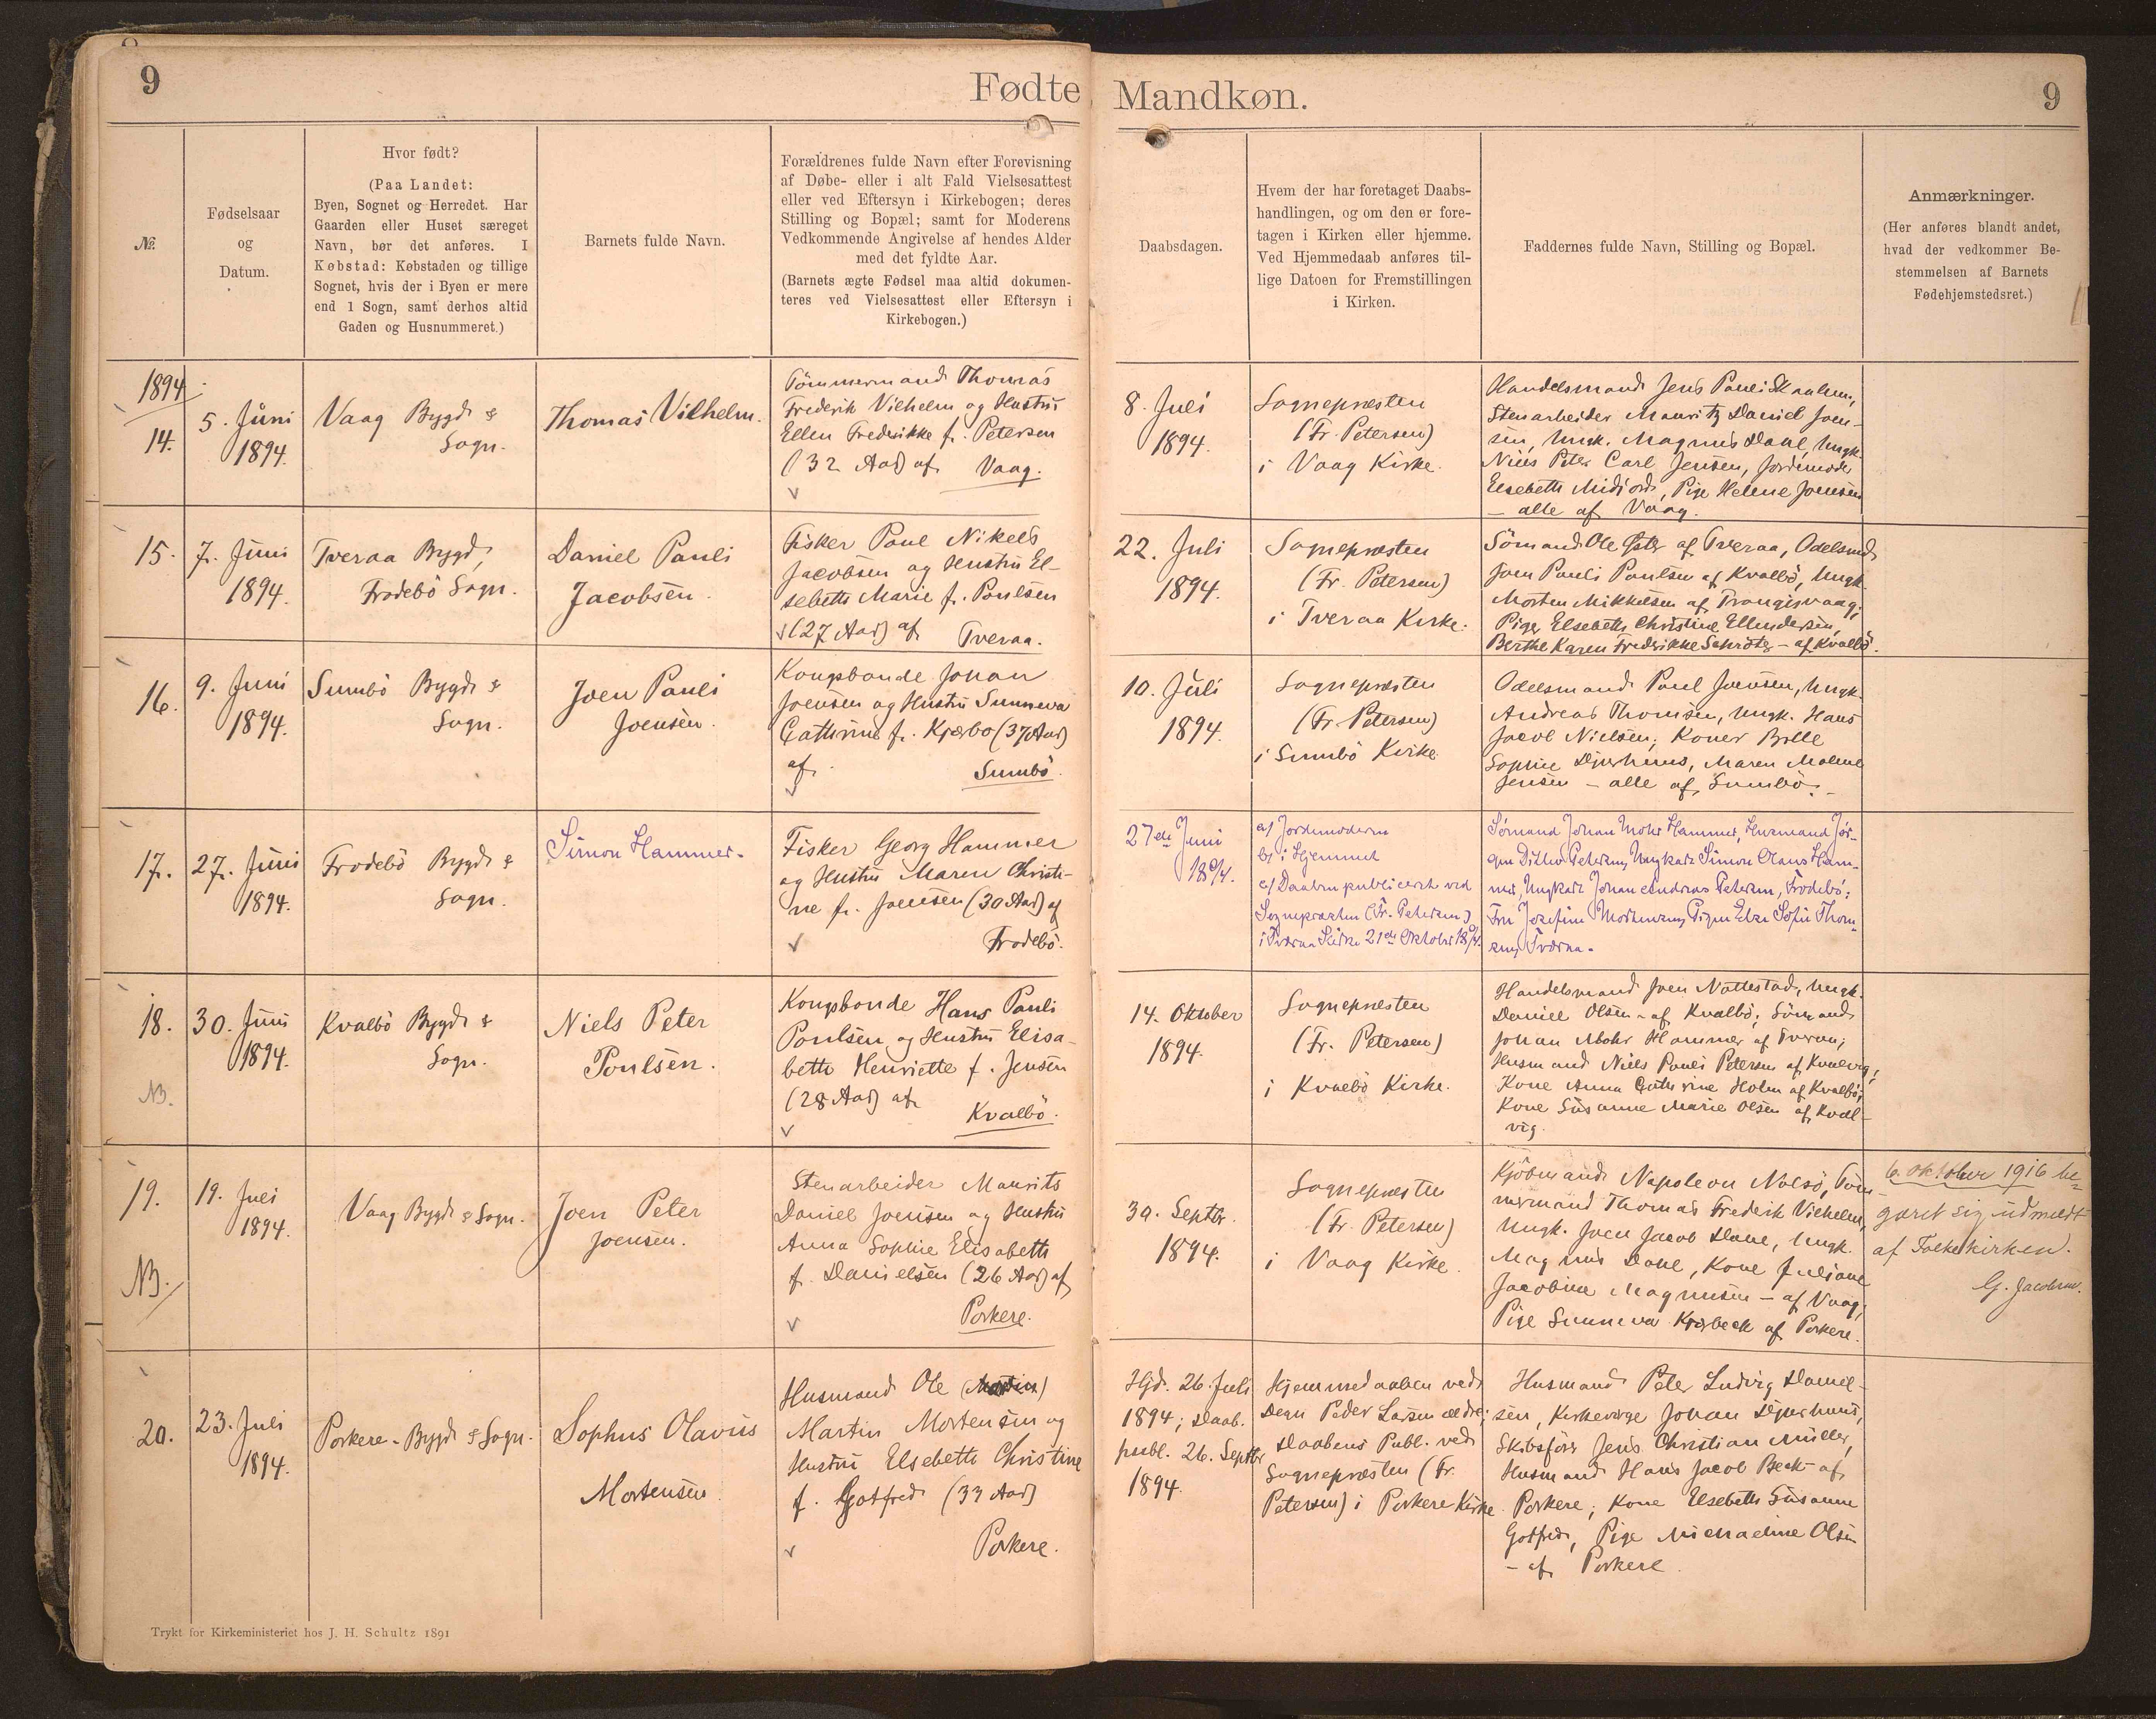 9
Fødte
Mandkøn.
9
№
Fødselsaar
og
Datum.
Hvor født?
(Paa Landet:
Byen, Sognet og Herredet. Har
Gaarden eller Huset særeget
Navn, bør det anføres. I
Købstad: Købstaden og tillige
Sognet, hvis der i Byen er mere
end 1 Sogn, samt derhos altid
Gaden og Husnummeret.)
Barnets fulde Navn.
Forældrenes fulde Navn efter Forevisning
af Døbe- eller i alt Fald Vielsesattest
eller ved Eftersyn i Kirkebogen; deres
Stilling og Bopæl; samt for Moderens
Vedkommende Angivelse af hendes Alder
med det fyldte Aar.
(Barnets ægte Fødsel maa altid dokumen-
teres ved Vielsesattest eller Eftersyn i
Kirkebogen.)
Daabsdagen.
Hvem der har foretaget Daabs-
handlingen, og om den er fore-
tagen i Kirken eller hjemme.
Ved Hjemmedaab anføres til-
lige Datoen for Fremstillingen
i Kirken.
Faddernes fulde Navn, Stilling og Bopæl.
Anmærkninger.
(Her anføres blandt andet,
hvad der vedkommer Be-
stemmelsen af Barnets
Fødehjemstedsret.)
1894
14.
5. Juni
1894.
Vaag Bygd &
Sogn.
Thomas Vilhelm.
Tömmermand Thomas
Frederik Vilhelm og Hustru
Ellen Frederikke f. Petersen
(32 Aar) af Vaag.
8. Juli
1894.
Sognepræsten
(Fr. Petersen)
i Vaag Kirke.
Handelsmand Jens Pauli Skaalum,
Stenarbeider Mauritz Daniel Joen-
sen, Ungk. Magnus Dahl, Ungk.
Niels Peter Carl Jensen, Jordemoder
Elsebeth Midjord, Pige Helene Joensen
- alle af Vaag.
15.
7. Juni
1894.
Tveraa Bygd,
Frodebö Sogn.
Daniel Pauli
Jacobsen.
Fisker Poul Nikels
Jacobsen og Hustru El-
sebeth Marie f. Poulsen
(27 Aar) af Tveraa.
22. Juli
1894.
Sognepræsten
(Fr. Petersen)
i Tveraa Kirke.
Sömand Ole af Tveraa, Odelsmd
Joen Pauli Poulsen af Kvalbö, Ungk.
Morten Mikkelsen af Trangisvaag;
Piger Elsebeth Christine Ellendersen,
Berthe Karen Frederikke Schröter - af Kvalbö.
16.
9. Juni
1894.
Sumbö Bygd &
Sogn.
Joen Pauli
Joensen.
Kongsbonde Johan
Joensen og Hustru Sunneva
Cathrine f. Kjærbo (37 Aar)
af Sumbö.
10. Juli
1894.
Sognepræsten
(Fr. Petersen)
i Sumbö Kirke.
Odelsmand Poul Joensen, Ungk.
Andreas Thomsen, Ungk. Hans
Jacob Nielsen; Koner Bille
Sophie Djurhuus, Maren Malene
Jensen - alle af Sumbö.
17.
27. Juni
1894.
Frodebö Bygd &
Sogn.
Simon Hammer.
Fisker Georg Hammer
og Hustru Maren Christi-
ne f. Joensen (30 Aar) af
Frodebö.
27de Juni
1894.
a) Jordemoderen
b) i Hjemmet
c) Daaben publiceret ved
Sognepræsten (Fr. Petersen)
i Tveraa Kirke 21de Oktober 1894.
Sömand Johan Mohr Hammer, Husmand Jør-
gen Ditlev Petersen, Ungkarl Simon Olaus Ham-
mer, Ungkarl Johan Andreas Petersen, Frodebö;
Fru Josefine Mortensen, Pigen Else Sofie Thom-
sen, Tveraa.
18.
NB.
30. Juni
1894.
Kvalbö Bygd &
Sogn.
Niels Peter
Poulsen.
Kongsbonde Hans Pauli
Poulsen og Hustru Elisa-
beth Henriette f. Jensen
(28 Aar) af
Kvalbö.
14. Oktober
1894.
Sognepræsten
(Fr. Petersen)
i Kvalbö Kirke.
Handelsmand Joen Nattestad, Ungk.
Daniel Olsen - af Kvalbö; Sömand
Johan Mohr Hammer af Tveraa;
Husmand Niels Pauli Petersen af Kvalvig;
Kone Anna Cathrine Holm af Kvalbö;
Kone Susanne Marie Olsen af Kval-
vig.
19.
NB.
19. Juli
1894.
Vaag Bygd & Sogn.
Joen Peter
Joensen.
Stenarbeider Maurits
Daniel Joensen og Hustru
Anna Sophie Elisabeth
f. Danielsen (26 Aar) af
Porkere.
30. Septbr.
1894.
Sognepræsten
(Fr. Petersen)
i Vaag Kirke.
Kjöbmand Napoleon Nolsö, Töm-
mermand Thomas Frederik Vilhelm,
Ungk. Joen Jacob Dahl, Ungk.
Magnus Dahl, Kone Juliane
Jacobine Magnusen - af Vaag;
Pige Sunneva Kjærbeck af Porkere.
6. oktober 1916 be-
gæret sig udmeldt
af Folkekirken.
G. Jacobsen.
20.
23. Juli
1894.
Porkere - Bygd & Sogn.
Sophus Olavus
Mortensen.
Husmand Ole
Martin Mortensen og
Hustru Elsebeth Christine
f. Gotfred (33 Aar)
Porkere.
Hjd. 26. Juli
1894; Daab.
publ. 26. Septbr
1894.
Hjemmedaaben ved
Degn Peder Larsen ældre;
Daabens Publ. ved
Sognepræsten (Fr.
Petersen) i Porkere Kirke.
Husmand Peter Ludvig Daniel-
sen, Kirkeværge Johan Djurhuus,
Skibsförer Jens Christian Müller,
Husmand Hans Jacob Beck - af
Porkere; Kone Elsebeth Susanne
Gotfred, Pige Michaeline Olsen
- af Porkere.
Trykt for Kirkeministeriet hos J. H. Schultz 1891